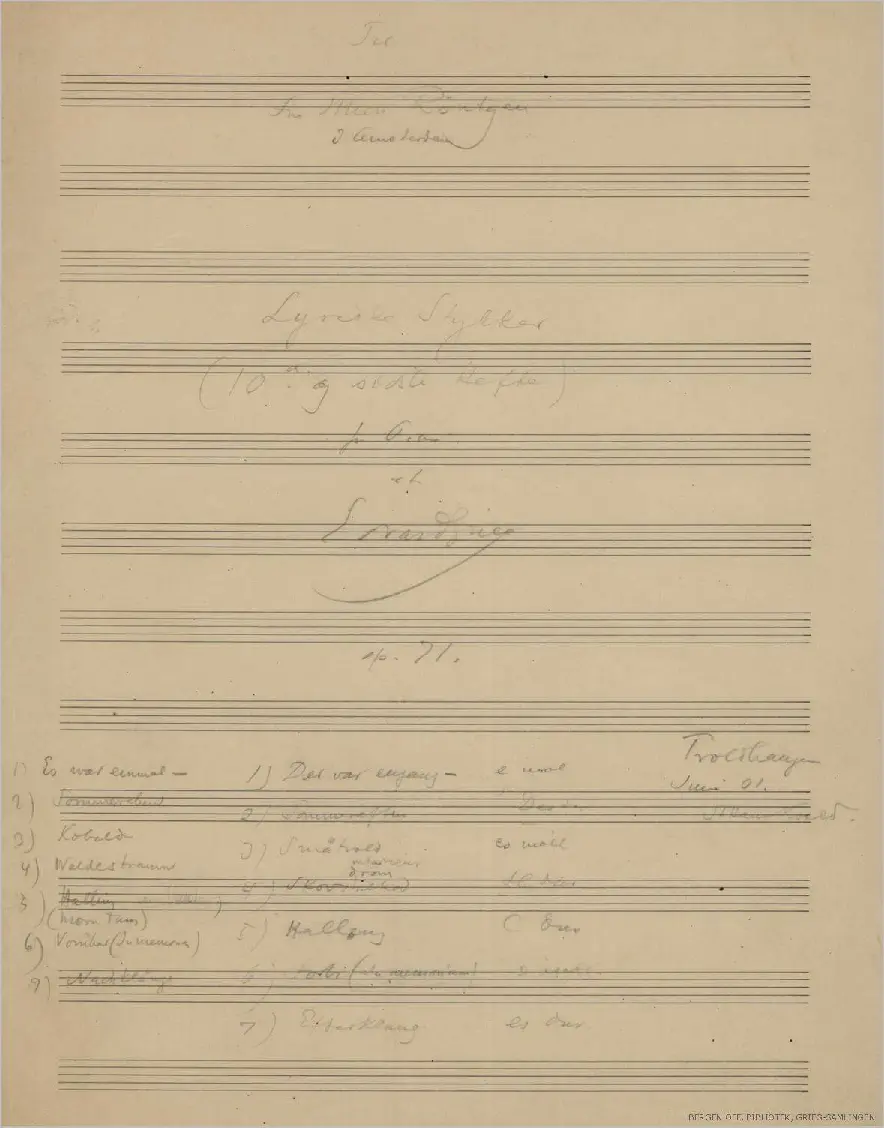 Til
Fru Mien Röntgen
i Amsterdam
Lyriske Stykker
(10de og sidste Hefte)
for Piano
af
Edvard Grieg
op. 71.
Troldhaugen
Juni 01.
1) Es war einmal –
2) Sommerabend
3) Kobold
4) Waldesstille
5) Halling
(Norw. Tanz)
6) Vorüber (In memoriam)
7) Nachklänge
1) Der var engang – e moll
2) Sommeraften Des dur
3) Småtrold es moll
4) Skovstilhed H dur
5) Halling C dur
6) Forbi (In memoriam)
7) Efterklang es dur
BERGEN OFF. BIBLIOTEK, GRIEG-SAMLINGEN